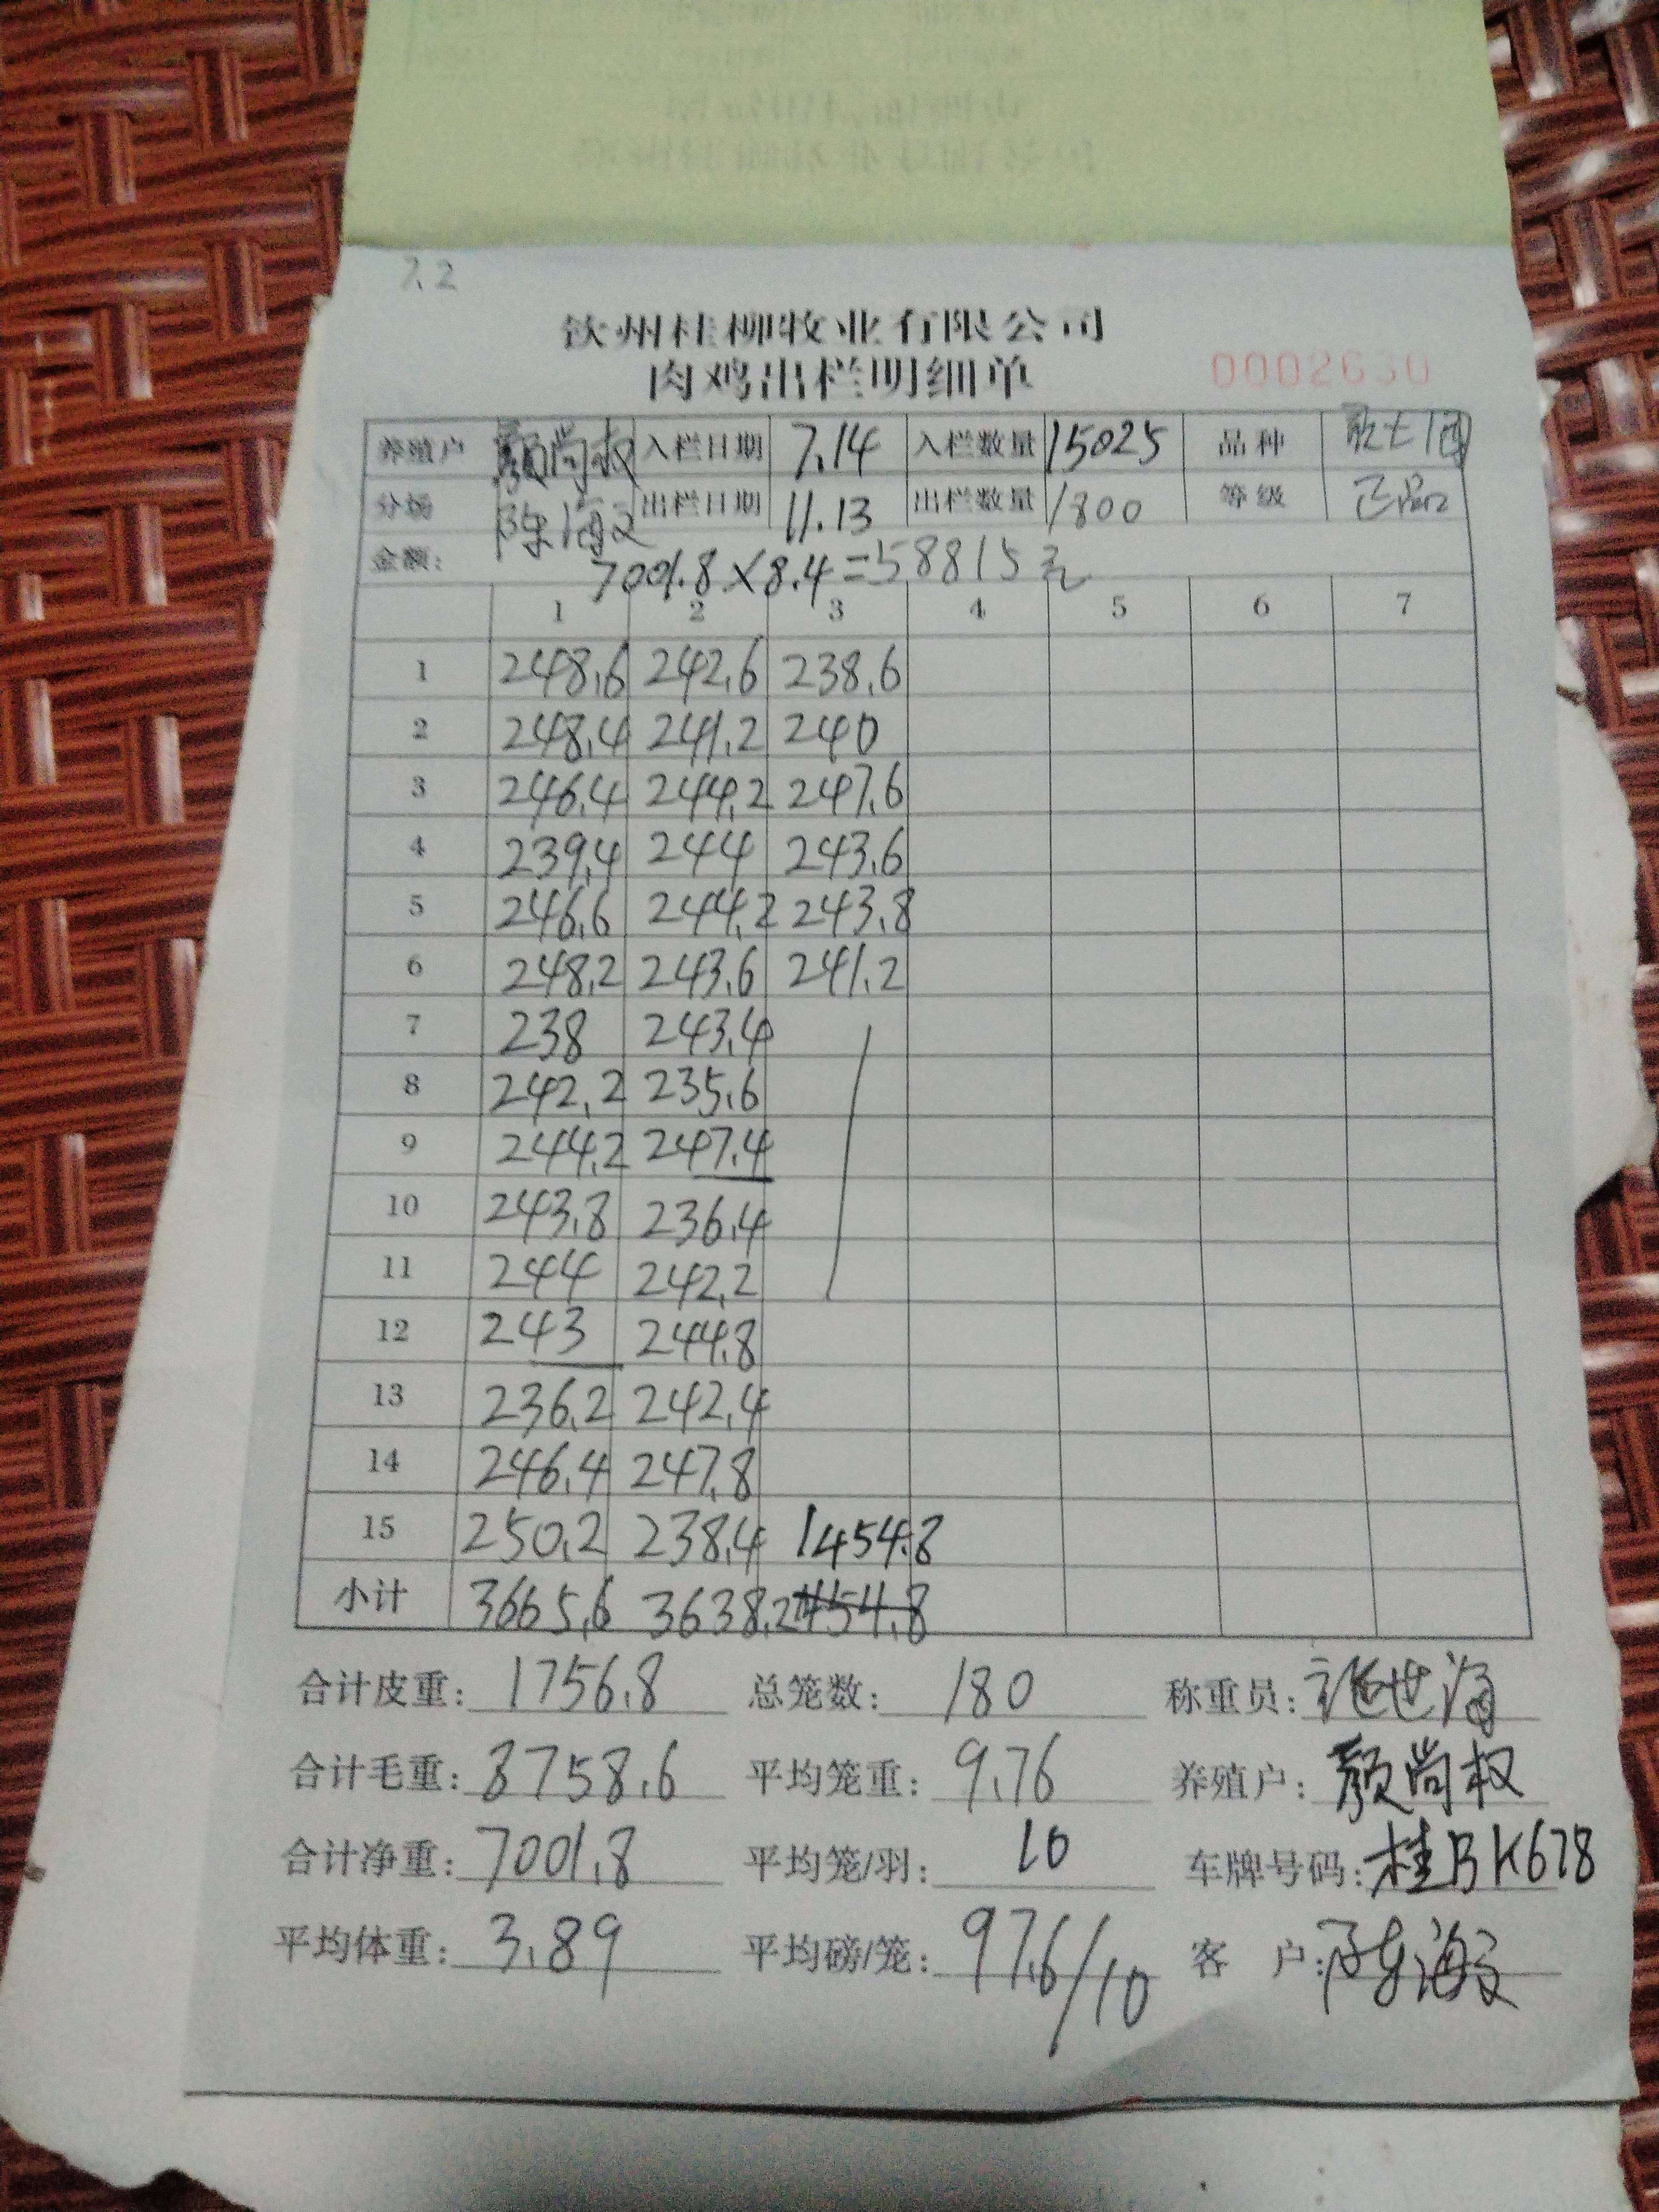 7.2
钦州桂柳牧业有限公司
肉鸡出栏明细单 0002630
养殖户 颜尚权 入栏日期 7.14 入栏数量 15025 品种
分场 陈海文 出栏日期 11.13 出栏数量 1800 等级 正品
金额: 7001.8×8.4=58815元
1 2 3 4 5 6 7
1 248.6 242.6 238.6
2 248.4 241.2 240
3 246.4 244.2 247.6
4 239.4 244 243.6
5 246.6 244.2 243.8
6 248.2 243.6 241.2
7 238 243.4
8 242.2 235.6
9 244.2 247.4
10 243.8 236.4
11 244 242.2
12 243 244.8
13 236.2 242.4
14 246.4 247.8
15 250.2 238.4 1454.8
小计 3665.6 3638.2 1454.8
合计皮重: 1756.8 总笼数: 180 称重员: 世海
合计毛重: 8758.6 平均笼重: 9.76 养殖户: 颜尚权
合计净重: 7001.8 平均笼/羽: 10 车牌号码: 桂BK678
平均体重: 3.89 平均磅/笼: 97.6/10 客 户: 陈海文